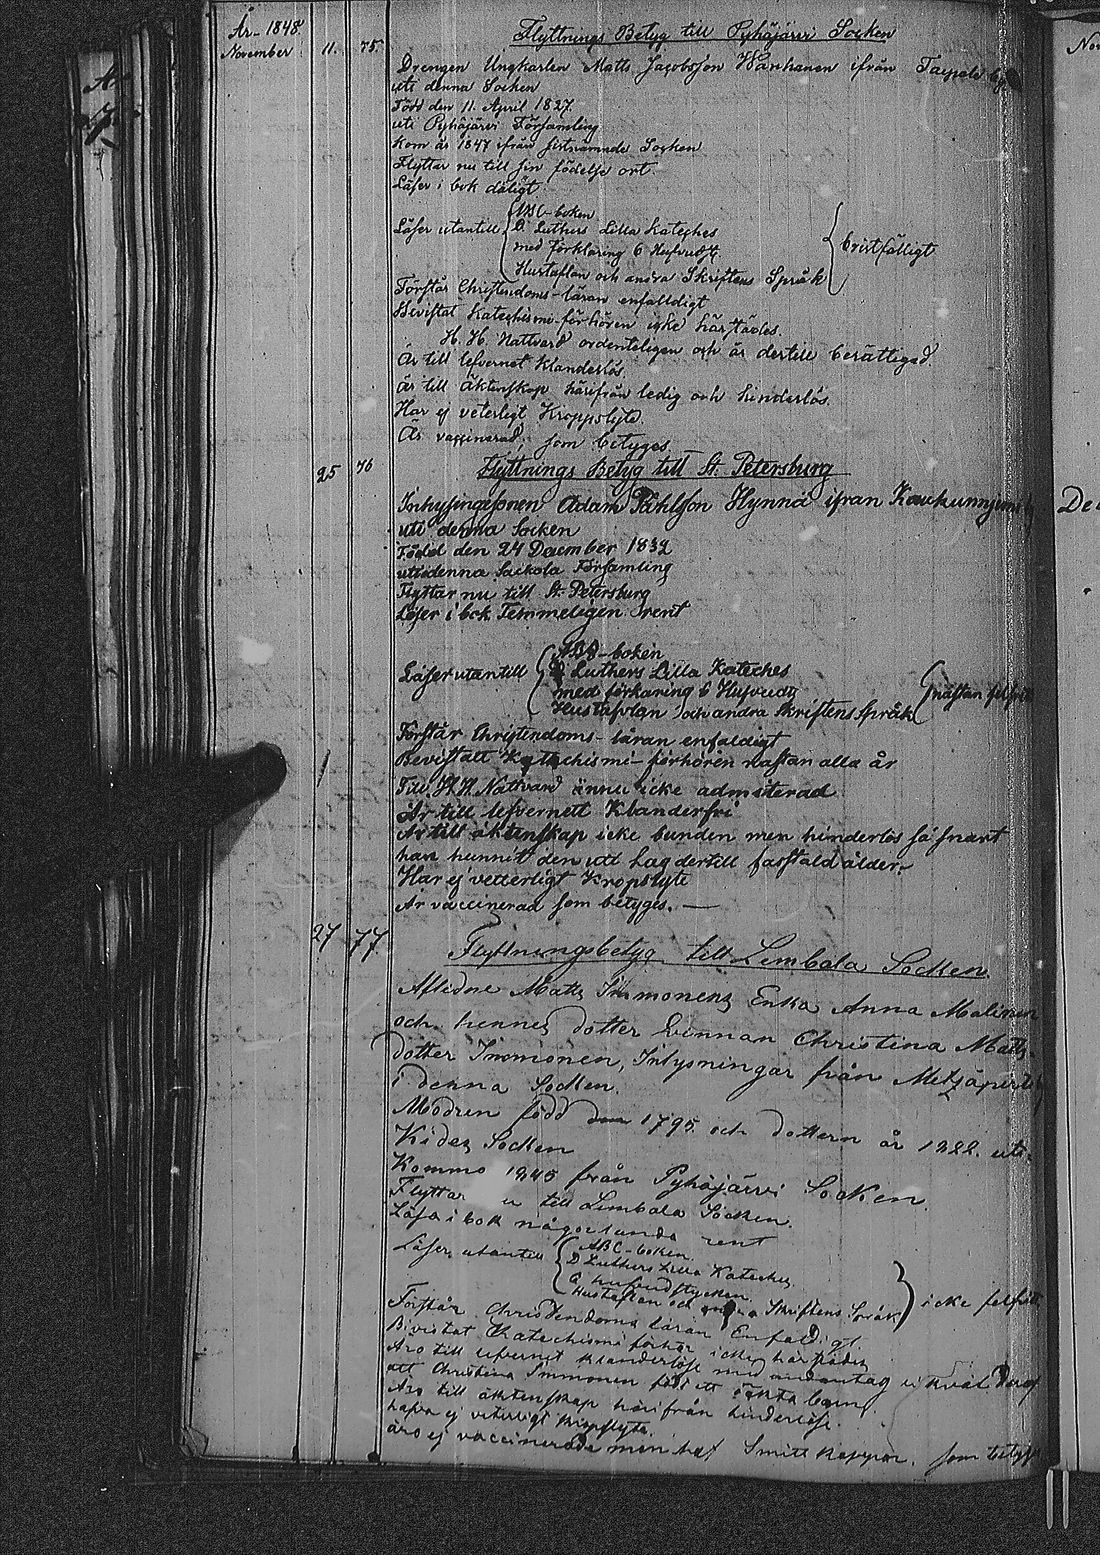 År 1848.
November 11. 75. Flyttnings Betyg till Pyhäjärvi Socken
Drengen Ungkarlen Matts Jacobsson ifrån Taipale by
uti denna Socken
Född den 11. April 1827.
uti Pyhäjärvi Församling
Kom år 1847 ifrån sistnämnde Socken
Flyttar nu till sin födelse ort
Läser i bok dåligt
ABC-boken
Läser utantill D. Luthers Lilla Kateches
med förklaring 6 Hufvudst. bristfälligt
Hustaflan och andra Skriftens Språk
Förstår Christendoms-läran enfalldigt
Bevistat Katechismi-förhören icke härstädes.
H. H. Nattvard ordenteligen och är dertill berättigad.
Är till lefvernet Klanderlös.
är till Äktenskap härifrån ledig och hinderlös
Har ej veterligt Kroppslyte.
Är vaccinerad, som betyges
25 76 Flyttnings Betyg till St. Petersburg
Inhysingesonen Adam Påhlsson Hynnä ifrån
uti denna Socken
Född den 24 December 1832
uti denna Sackola Församling
Flyttar nu till St. Petersburg
Läser i bok Temmeligen rent
ABC-boken
Läser utantill D Luthers Lilla Kateches
med förkaring 6 Hufvudst nästan felfritt
Hustavlan och andra Skriftens Språk
Förstår Christendoms-läran enfaldigt
Bevistatt Katechismi-förhören nästan alla år
Till H.H. Nattvard ännu icke admiterad
Är till lefvernett Klanderfri
Är till äktenskap icke bunden men hinderlös så snart
han hunnit den uti lag dertill fastsald ålder.
Har ej vetterligt Kropslyte
Är vaccinerad som betyges. —
27 77. Flyttningsbetyg till Lembala Socken
Aflidne Matts Immonens Enka Anna Malinen
och hennes dotter Qvinnan Christina Matts
dotter Immonen, Inhysningar från Metsäpirtti
i denna Socken.
Modren född den 1795 och dottern år 1822. uti
Kides Socken
Kommo 1845 från Pyhäjärvi Socken.
Flyttar nu till Lembala Socken.
Läsa i bok någorlunda rent
ABC-boken
Läser utantill D Luthers Lilla Kateches
6 hufvudstycken icke felfritt
Hustaflan och andra Skriftens Språk
Förstår Christendoms läran Enfaldigt.
Bivistat Katechismi förhör icke härstädes
Äro till lefvernet klanderlöse med undantag
att Christina Immonen född ett oäkta barn
Äro till äktenskap härifrån hinderlöse.
hafva ej veterligt kroppslyte.
äro ej vaccinerade men haf Smitt Koppor. som betyges